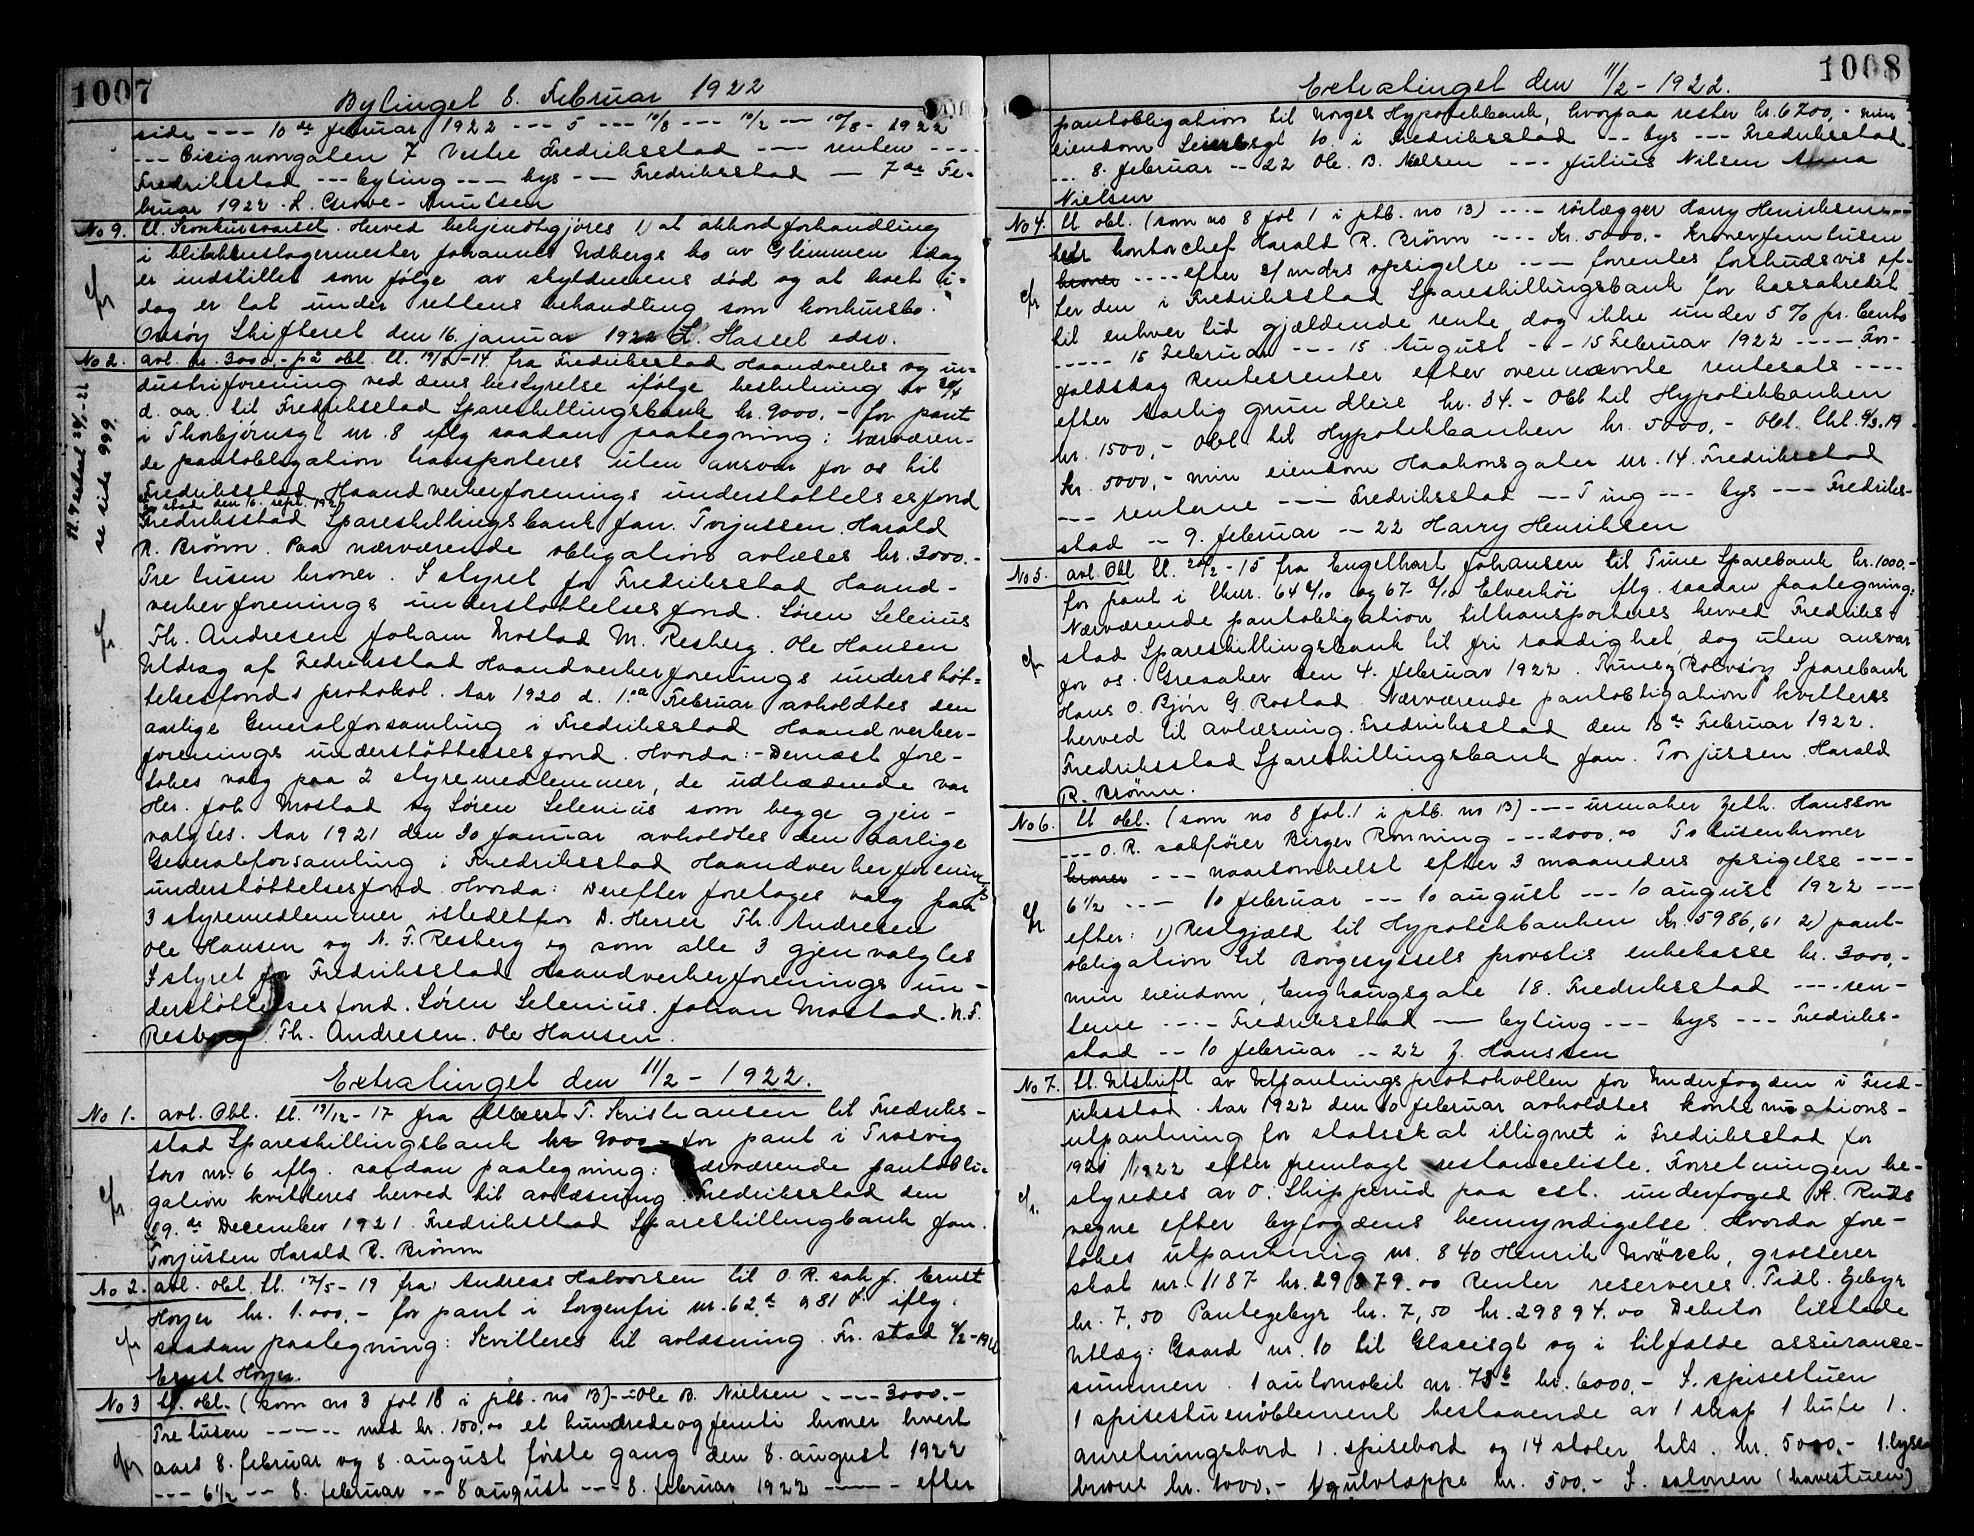 1007
Bytinget 8. Februar 1922
side --- 10de februar 1922 --- 5 --- 10/8 --- 10/2 --- 10/8 - 1922
--- Cicignongaten 7 Vestre Fredriksstad --- renten ---
Fredriksstad --- byting --- bys --- Fredriksstad --- 7de Fe-
bruar 1922. L. Knutsen
No 9. tl. Konkursvarsel. Herved bekjendtgjøres 1) at akkordforhandling
i blikkenslagermester Johannes Udbergs bo av Glimmen idag
er indstillet som følge av skyldnerens død og at boet i-
dag er tat under rettens behandling som konkursbo.
Onsøy Skifteret den 16. januar 1922 L. Hassel edsv.
No 2. avl. kr. 3000.- på obl. tl. 19/8-14 fra Fredriksstad Haandverks og in-
dustriforening ved dens bestyrelse ifølge beslutning av 20/4
d. aa. til Fredriksstad Spareskillingsbank kr. 9000.- for pant
i Thorbjørnsgt nr. 8 iflg saadan paategning: Nærværen-
de pantobligation transporteres uten ansvar for os til
Fredriksstad Haandverkerforenings understøttelsesfond
Fr.stad den 16. sept. 192
Fredriksstad Spareskillingsbank Jan. Torjussen. Harald
R. Brønn. Paa nærværende obligation avlæses kr. 3000.-
Tre tusen kroner. I styret for Fredriksstad Haand-
verkerforenings understøttelsesfond. Søren Selenius
Th. Andresen Johan Mostad M. Resberg. Ole Hansen
Utdrag af Fredriksstad Haandverkerforenings understøt-
telsesfonds protokol. Aar 1920 d. 1ste Februar avholdtes den
aarlige Generalforsamling i Fredriksstad Haandverker-
forenings understøttelsesfond. Hvorda: - Dernæst fore-
tokes valg paa 2 styremedlemmer, de udtrædende var
Hr. Joh Mostad og Søren Selenius som begge gjen-
valgtes. Aar 1921 den 30 januar avholdtes den aarlige
Generalforsamling i Fredriksstad Haandverkerforenings
understøttelsesfond. Hvorda: Derefter foretages valg paa
3 styremedlemmer istedetfor D. Herrer Th. Andresen
Ole Hansen og N. F. Resberg og som alle 3 gjenvalgtes
I styret for Fredriksstad Haandverkerforenings un-
derstøttelsesfond. Søren Selenius. Johan Mostad. N. F.
Resberg. Th. Andresen. Ole Hansen.
se side 999.
Extratinget den 11/2 - 1922.
No 1. avl. Obl. tl. 19/12 - 17 fra Albert T. Kristiansen til Fredriks-
stad Spareskillingsbank kr 9000 - for pant i Trosvig
torv nr. 6 iflg. saadan paategning: Nærværende pantobli-
gation kvitteres herved til avlæsning. Fredriksstad den
29.de December 1921. Fredriksstad Spareskillingbank Jan.
Torjussen Harald R. Brønn
No 2. avl. obl. tl. 17/5 - 19 fra Andreas Halvorsen til O. R. sakf. Ernst
Høyer kr. 1.000.- for pant i Sorgenfri nr. 62 a 81 iflg.
saadan paategning: Kvitteres til avlæsning Fr. stad 4/2 - 1922
Ernst Høyer.
No 3 tl. obl. (som no 3 fol 18 i ptb. no 13) --- Ole B. Nielsen --- 3000.-
Tre tusen --- med kr. 150,00 et hundredeogfemti kroner hvert
aars 8. februar og 8. august første gang den 8. august 1922
--- 6 1/2 --- 8. februar --- 8 august --- 8. februar 1922 --- efter
1008
Extratinget den 11/2 - 1922.
pantobligation til Norges Hypotekbank, hvorpaa rester kr. 6700,- min
eiendom 10. i Fredriksstad --- bys --- Fredriksstad
--- 8. februar --- 22 Ole. B. Nielsen --- Julius Nilsen Anna
Nielsen
No 4. tl obl. (som no 8 fol 1 i ptb. no 13) --- rørlægger Harry Henriksen ---
herr kontorchef Harald R. Brønn --- Kr. 5000.- Kroner fem tusen
kroner --- efter 3/mdrs opsigelse --- forrentes forskudsvis ef-
ter den i Fredriksstad Spareskillingsbank for kassakredit
til enhver tid gjældende rente dog ikke under 5 % pr. Cento
--- 15 Februar --- 15 August --- 15 Februar 1922 --- For-
faldsdag Rentesrenter efter ovennævnte rentesats ---
efter aarlig grundleie kr. 34.- Obl til Hypotekbanken
kr. 1500,- Obl til Hypotekbanken kr. 5000,- Obl. tl. 6/3-19
kr. 5000,- min eiendom Haakonsgaten nr. 14. Fredriksstad
--- renterne --- Fredriksstad --- Ting --- bys --- Fredriks-
stad --- 9. februar --- 22 Harry Henriksen
No 5. avl. Obl tl. 20/2 - 15 fra Engelhart Johansen til Tune Sparebank kr. 1000,-
for pant i lknr. 64 og 67 Elverhøi iflg. saadan paategning:
Nærværende pantobligation tiltransporteres herved Fredriks-
stad Spareskillingsbank til fri raadighet dog uten ansvar
for os. Greaaker den 4. februar 1922. Tune & Rolvsøy Sparebank
Hans O. Bjøn G Rostad. Nærværende pantobligation kvitteres
herved til avlæsning. Fredriksstad den 10de Februar 1922.
Fredriksstad Spareskillingsbank Jan. Torjussen. Harald
R. Brønn.
No 6. tl obl. (som no 8 fol. 1 i ptb. no 13) --- urmaker Zeth. Hansson
--- O. R. sakfører Birger Rønning --- 2000.00 To tusen kroner
kroner --- naarsomhelst efter 3 maaneders opsigelse ---
6 1/2 --- 10 februar --- 10 august --- 10 august 1922 ---
efter: 1) Restgjæld til Hypotekbanken kr. 5986,61 2) pant-
obligation til Borgesyssels provstis enkekasse kr. 3000,-
min eiendom, Enghaugsgate 18. Fredriksstad --- ren-
terne --- Fredriksstad --- byting --- bys --- Fredriks-
stad --- 10 februar --- 22 Z. Hansson
No 7. tl. Utskrift av Utpantningsprotokollen for Underfogden i Fred-
riksstad. Aar 1922 den 10 februar avholdtes kontinuations-
utpantning for statsskat illignet i Fredriksstad for
1921/1922 efter fremlagt restanceliste. Forretningen be-
styredes av O. Skipperud paa cst. underfoged A. Ruds
vegne efter byfogdens bemyndigelse. Hvorda fore-
tokes utpantning nr. 840 Henrik Mørch, grosserer
skat nr. 1187 kr. 29879.00 Renter reserveres. Tidl. Gebyr
kr. 7,50 Pantegebyr kr. 7,50 kr. 29894.00 Debitor tilstede
Utlæg: Gaard nr. 10 til Glacisgt og i tilfælde assurance-
summen. 1 automobil nr. kr. 6000.- I. spisestuen
1 spisestuemøblement bestaaende av 1 skap 1 bufe 1.
anretningsbord 1. spisebord og 14 stoler tils. kr. 5000.- 1. lyse-
krone kr. 1000.- 1 gulvtæppe kr. 500.- I. salonen (havestuen)